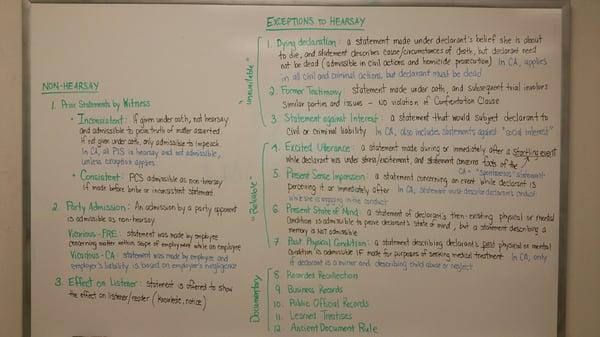 NON-HEARSAY
1. Prior Statements by Witness
• Inconsistent: If given under oath, not hearsay
and admissible to prove truth of matter asserted
If not given under oath, only admissible to impeach
In CA, all PIS is hearsay and not admissible,
unless exception applies
• Consistent: PCS admissible as non-hearsay
if made before bribe or inconsistent statement
2. Party Admission: An admission by a party opponent
is admissible as non-hearsay
Vicarious - FRE: statement was made by employee
concerning matter within scope of employment while an employee
Vicarious - CA: statement was made by employee and
employer's liability is based on employee's negligence
3. Effect on Listener: statement is offered to show
the effect on listener/reader (knowledge, notice)
EXCEPTIONS TO HEARSAY
"unavailable"
1. Dying declaration: a statement made under declarant's belief she is about
to die, and statement describes cause/circumstances of death, but declarant need
not be dead (admissible in civil actions and homicide prosecution) In CA, applies
in all civil and criminal actions, but declarant must be dead
2. Former Testimony: statement made under oath, and subsequent trial involves
similar parties and issues - NO violation of Confrontation Clause
3. Statement against Interest: a statement that would subject declarant to
civil or criminal liability In CA, also includes statements against "social interest"
"Reliable"
4. Excited Utterance: a statement made during or immediately after a startling event
while declarant was under stress/excitement, and statement concerns facts of the
CA = "spontaneous" statement
5. Present Sense Impression: a statement concerning an event while declarant is
perceiving it or immediately after In CA, statement must describe declarant's conduct
while she is engaging in the conduct
6. Present State of Mind: a statement of declarant's then-existing physical or mental
condition is admissible to prove declarant's state of mind, but a statement describing a
memory is not admissible
7. Past Physical Condition: a statement describing declarant's past physical or mental
condition is admissible IF made for purposes of seeking medical treatment In CA, only
if declarant is a minor and describing child abuse or neglect
Documentary
8. Recorded Recollection
9. Business Records
10. Public Official Records
11. Learned Treatises
12. Ancient Document Rule